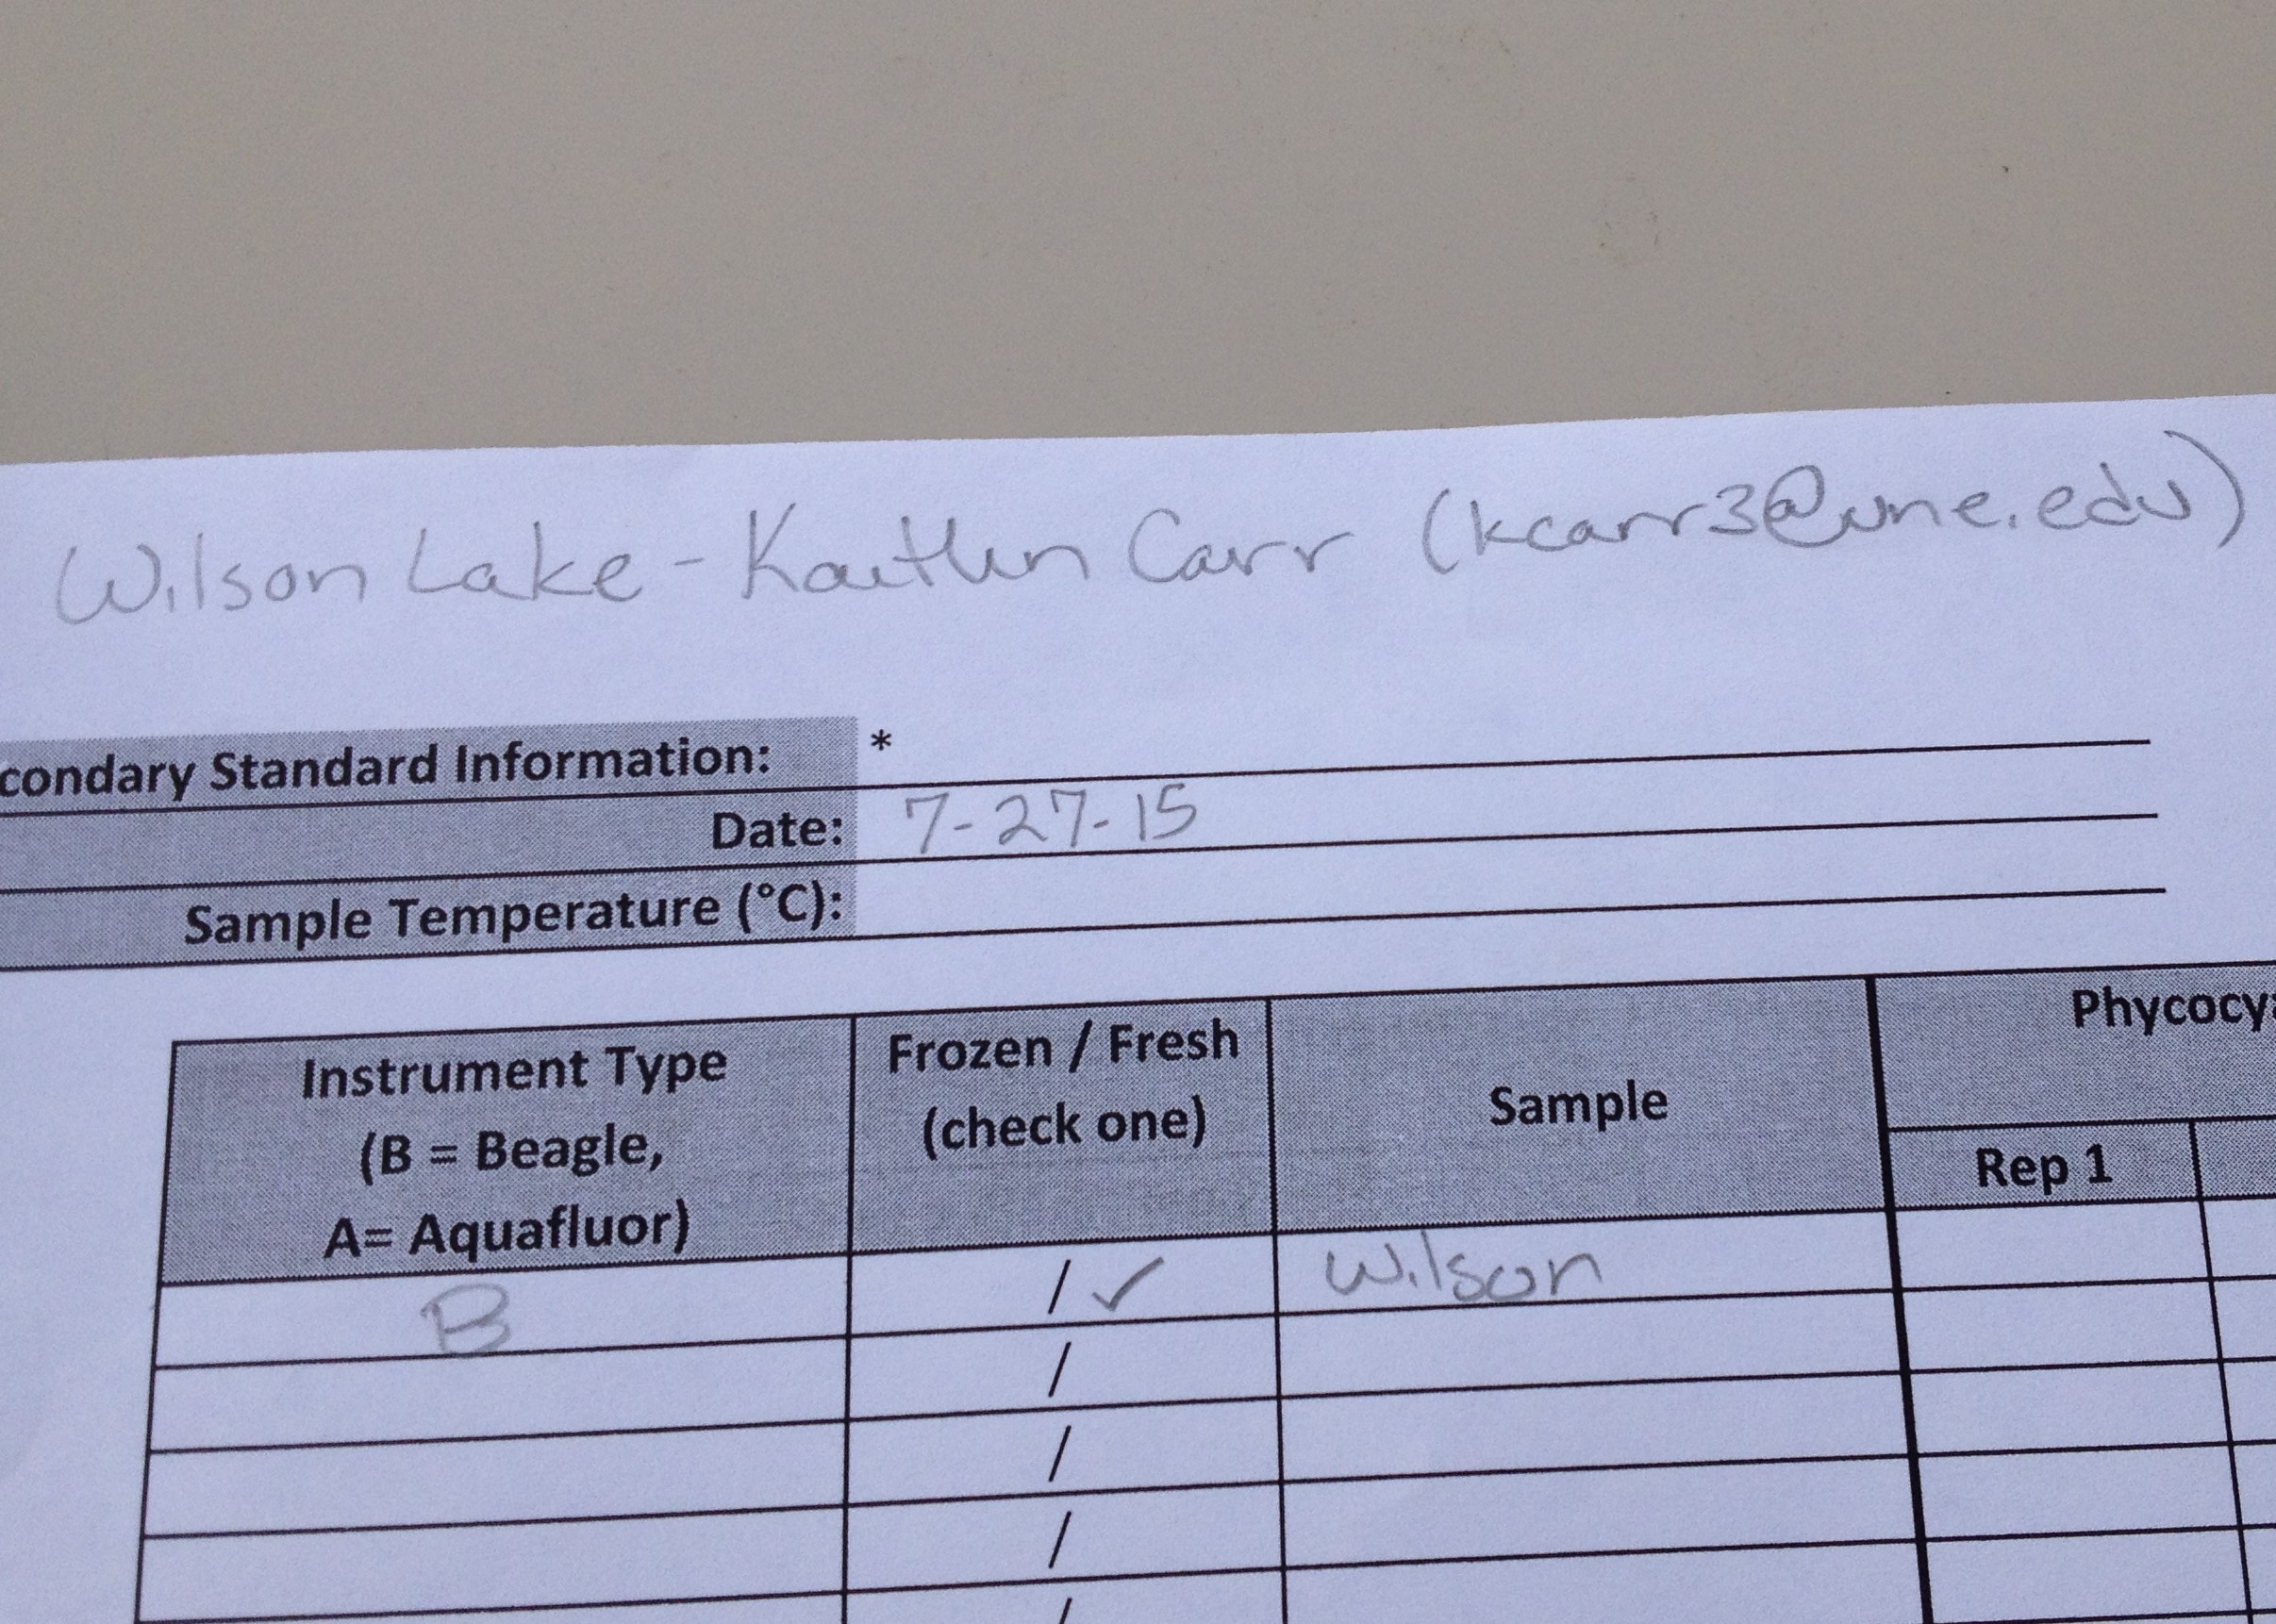 Wilson Lake - Kaitlin Carr (kcarr3@une.edu)
condary Standard Information: *
Date: 7-27-15
Sample Temperature (°C):
Instrument Type
(B = Beagle,
A= Aquafluor)
Frozen / Fresh
(check one)
Sample
Phycocy
Rep 1
B
/ ✓
Wilson
/
/
/
/